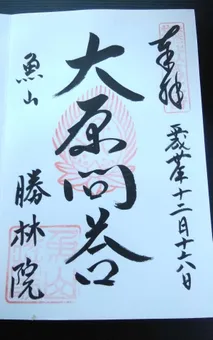 奉拝
平成廿年十二月十六日
大原問答
魚山
勝林院